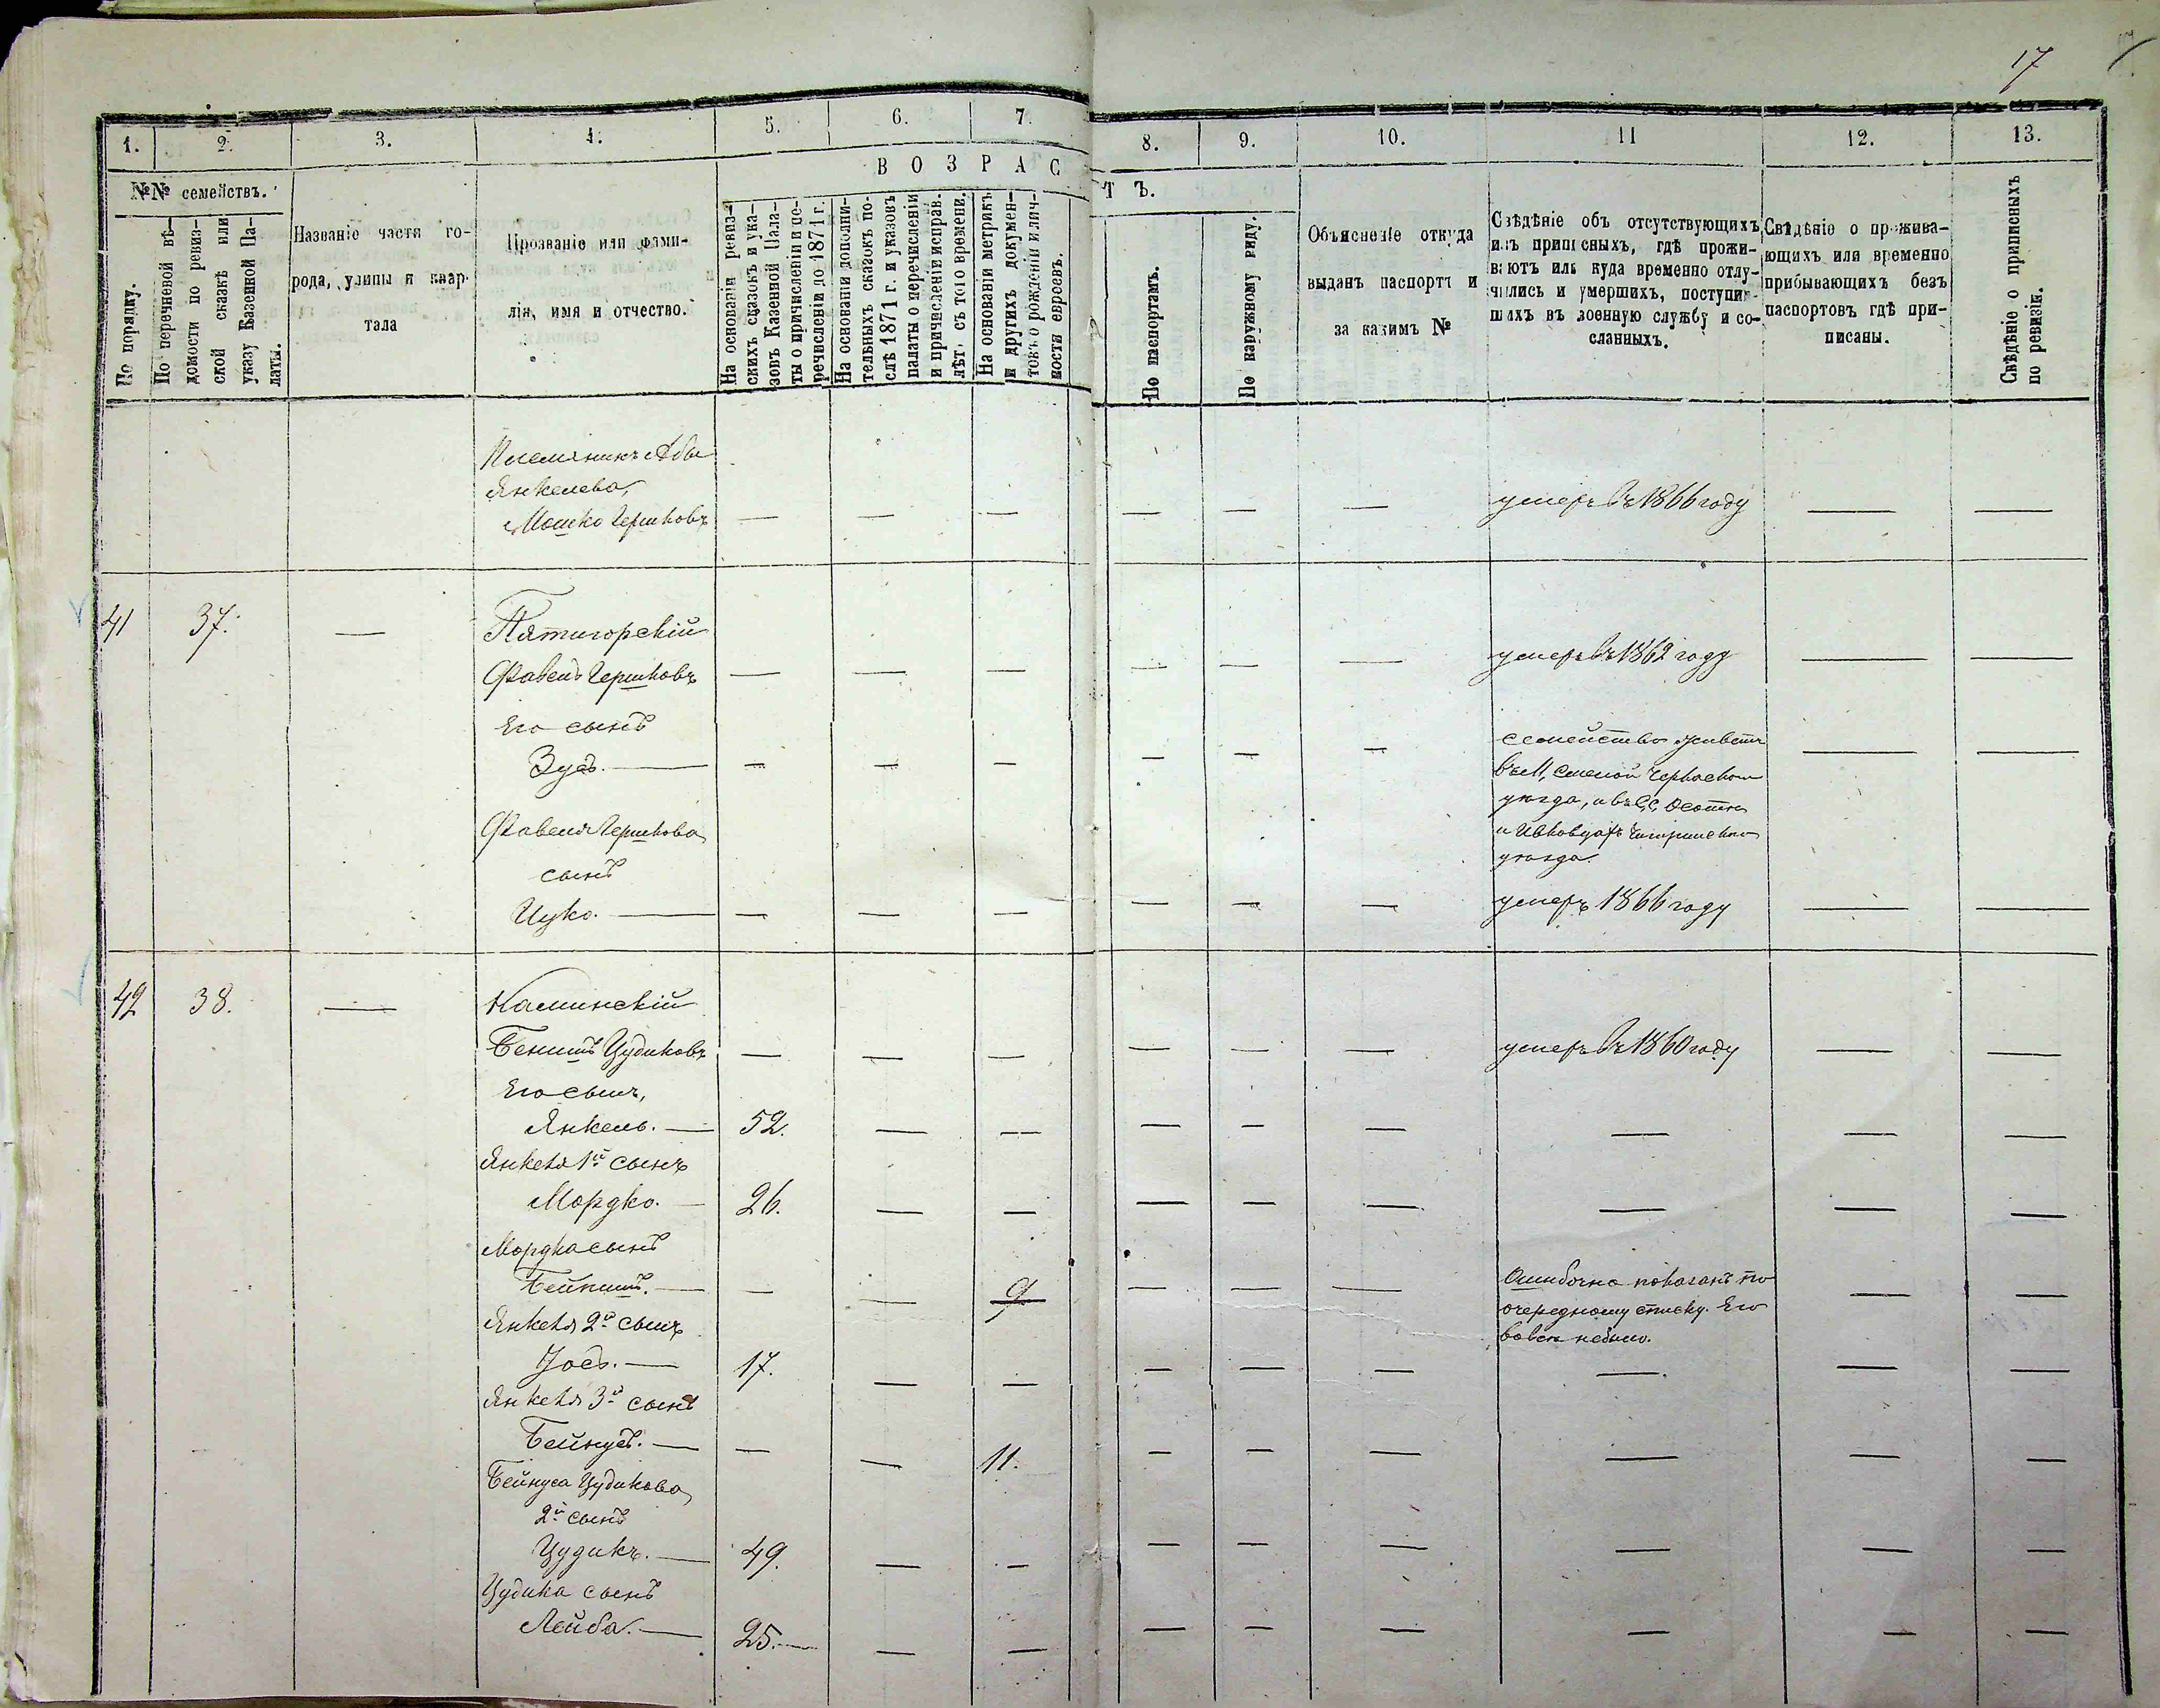 17
1. 2. 3. 4. 5. 6. 7. 8. 9. 10. 11 12. 13.
№№ семействъ.
ВОЗРАС
ТЪ.
По порядку.
По перечневой вѣ-
домости по ревиз-
ской сказкѣ или
указу Казенной Па-
латы.
Названіе части го-
рода, улицы и квар-
тала
Прозваніе или фами-
лія, имя и отчество.
На основаніи ревиз-
скихъ сказокъ и ука-
зовъ Казенной Пала-
ты о причисленіи и пе-
речисленіи до 1871 г.
На основаніи дополни-
тельныхъ сказокъ по-
слѣ 1871 г. и указовъ
палаты о перечисленіи
и причисленіи исправ.
лѣт. съ того времени.
На основаніи метрикъ
и другихъ докумен-
товъ о рожденіи и лич-
ности евреевъ.
По паспортамъ.
По наружному виду.
Объясненіе откуда
выданъ паспортъ и
за какимъ №
Свѣдѣніе объ отсутствующихъ
изъ приписныхъ, гдѣ прожи-
ваютъ или куда временно отлу-
чились и умершихъ, поступив-
шихъ въ военную службу и со-
сланныхъ.
Свѣдѣніе о прожива-
ющихъ или временно
прибывающихъ безъ
паспортовъ гдѣ при-
писаны.
Свѣдѣніе о приписныхъ
по ревизіи.
Племянникъ Абы
Янкелева,
Мошко Гершковъ — — — — — — умеръ въ 1866 году — —
41 37. — Пятигорскій
Фавель Гершковъ — — — — — — умеръ въ 1862 году — —
Его сынъ
Зусь. — — — — — — — семейство живетъ — —
въ М, Смелой Черкаскаго
уѣзда, и въ С,С, Осотн
и Ивковцахъ Чигиринскаго
уѣзда.
Фавеля Гершкова
сынъ
Ицко. — — — — — — — умеръ 1866 году — —
42 38. — Каминскій
Бенишъ Цудиковъ — — — — — — умеръ въ 1860 году — —
Его сынъ,
Янкель. — 52. — — — — — — — —
Янкеля 1й сынъ
Мордко. — 26. — — — — — — — —
Мордка сынъ
Бейнишъ. — — — 9 — — — Ошибочно показанъ по — —
очередному списку. Его
вовсе небыло.
Янкеля 2й сынъ
Іось. — 17. — — — — — — — —
Янкеля 3й сынъ
Бейнусъ. — — — 11. — — — — — —
Бейнуса Цудикова
2й сынъ
Цудикъ. — 49. — — — — — — — —
Цудика сынъ
Лейба. — 25. — — — — — — — —